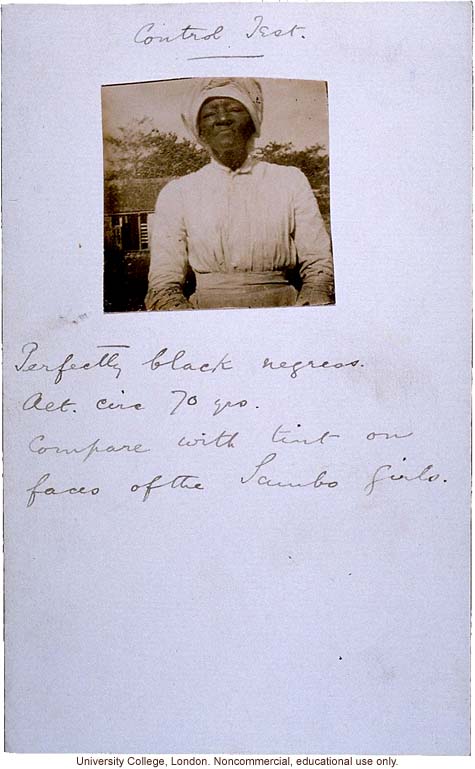 Control Test.
Perfectly black negress.
Aet. circ 70 yrs.
Compare with tint on
faces of the Sambo Girls.
University College, London. Noncommercial, educational use only.